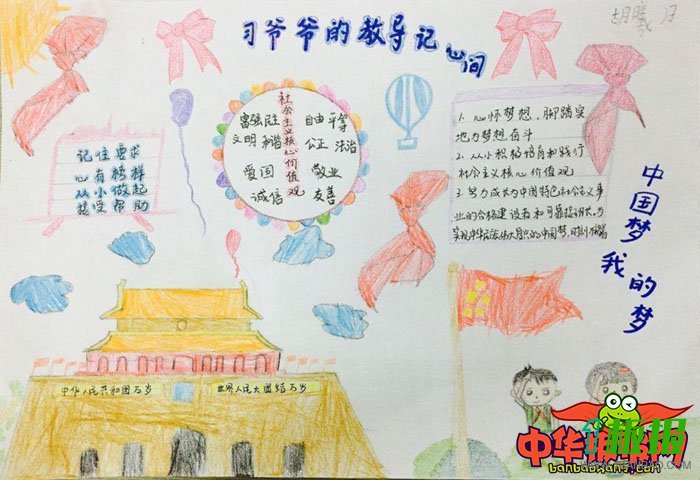 习爷爷的教导记心间
记住要求
心有榜样
从小做起
接受帮助
社会主义核心价值观
富强民主 自由平等
文明 和谐 公正 法治
爱国 敬业
诚信 友善
1. 心怀梦想，脚踏实
地为梦想奋斗
2. 从小积极培育和践行
社会主义核心价值观
3. 努力成为中国特色社会主义事
业的合格建设者和可靠接班人,为
实现中华民族伟大复兴的中国梦,时刻
中国梦我的梦
中华人民共和国万岁
世界人民大团结万岁
中华板报网
banbaowang.com